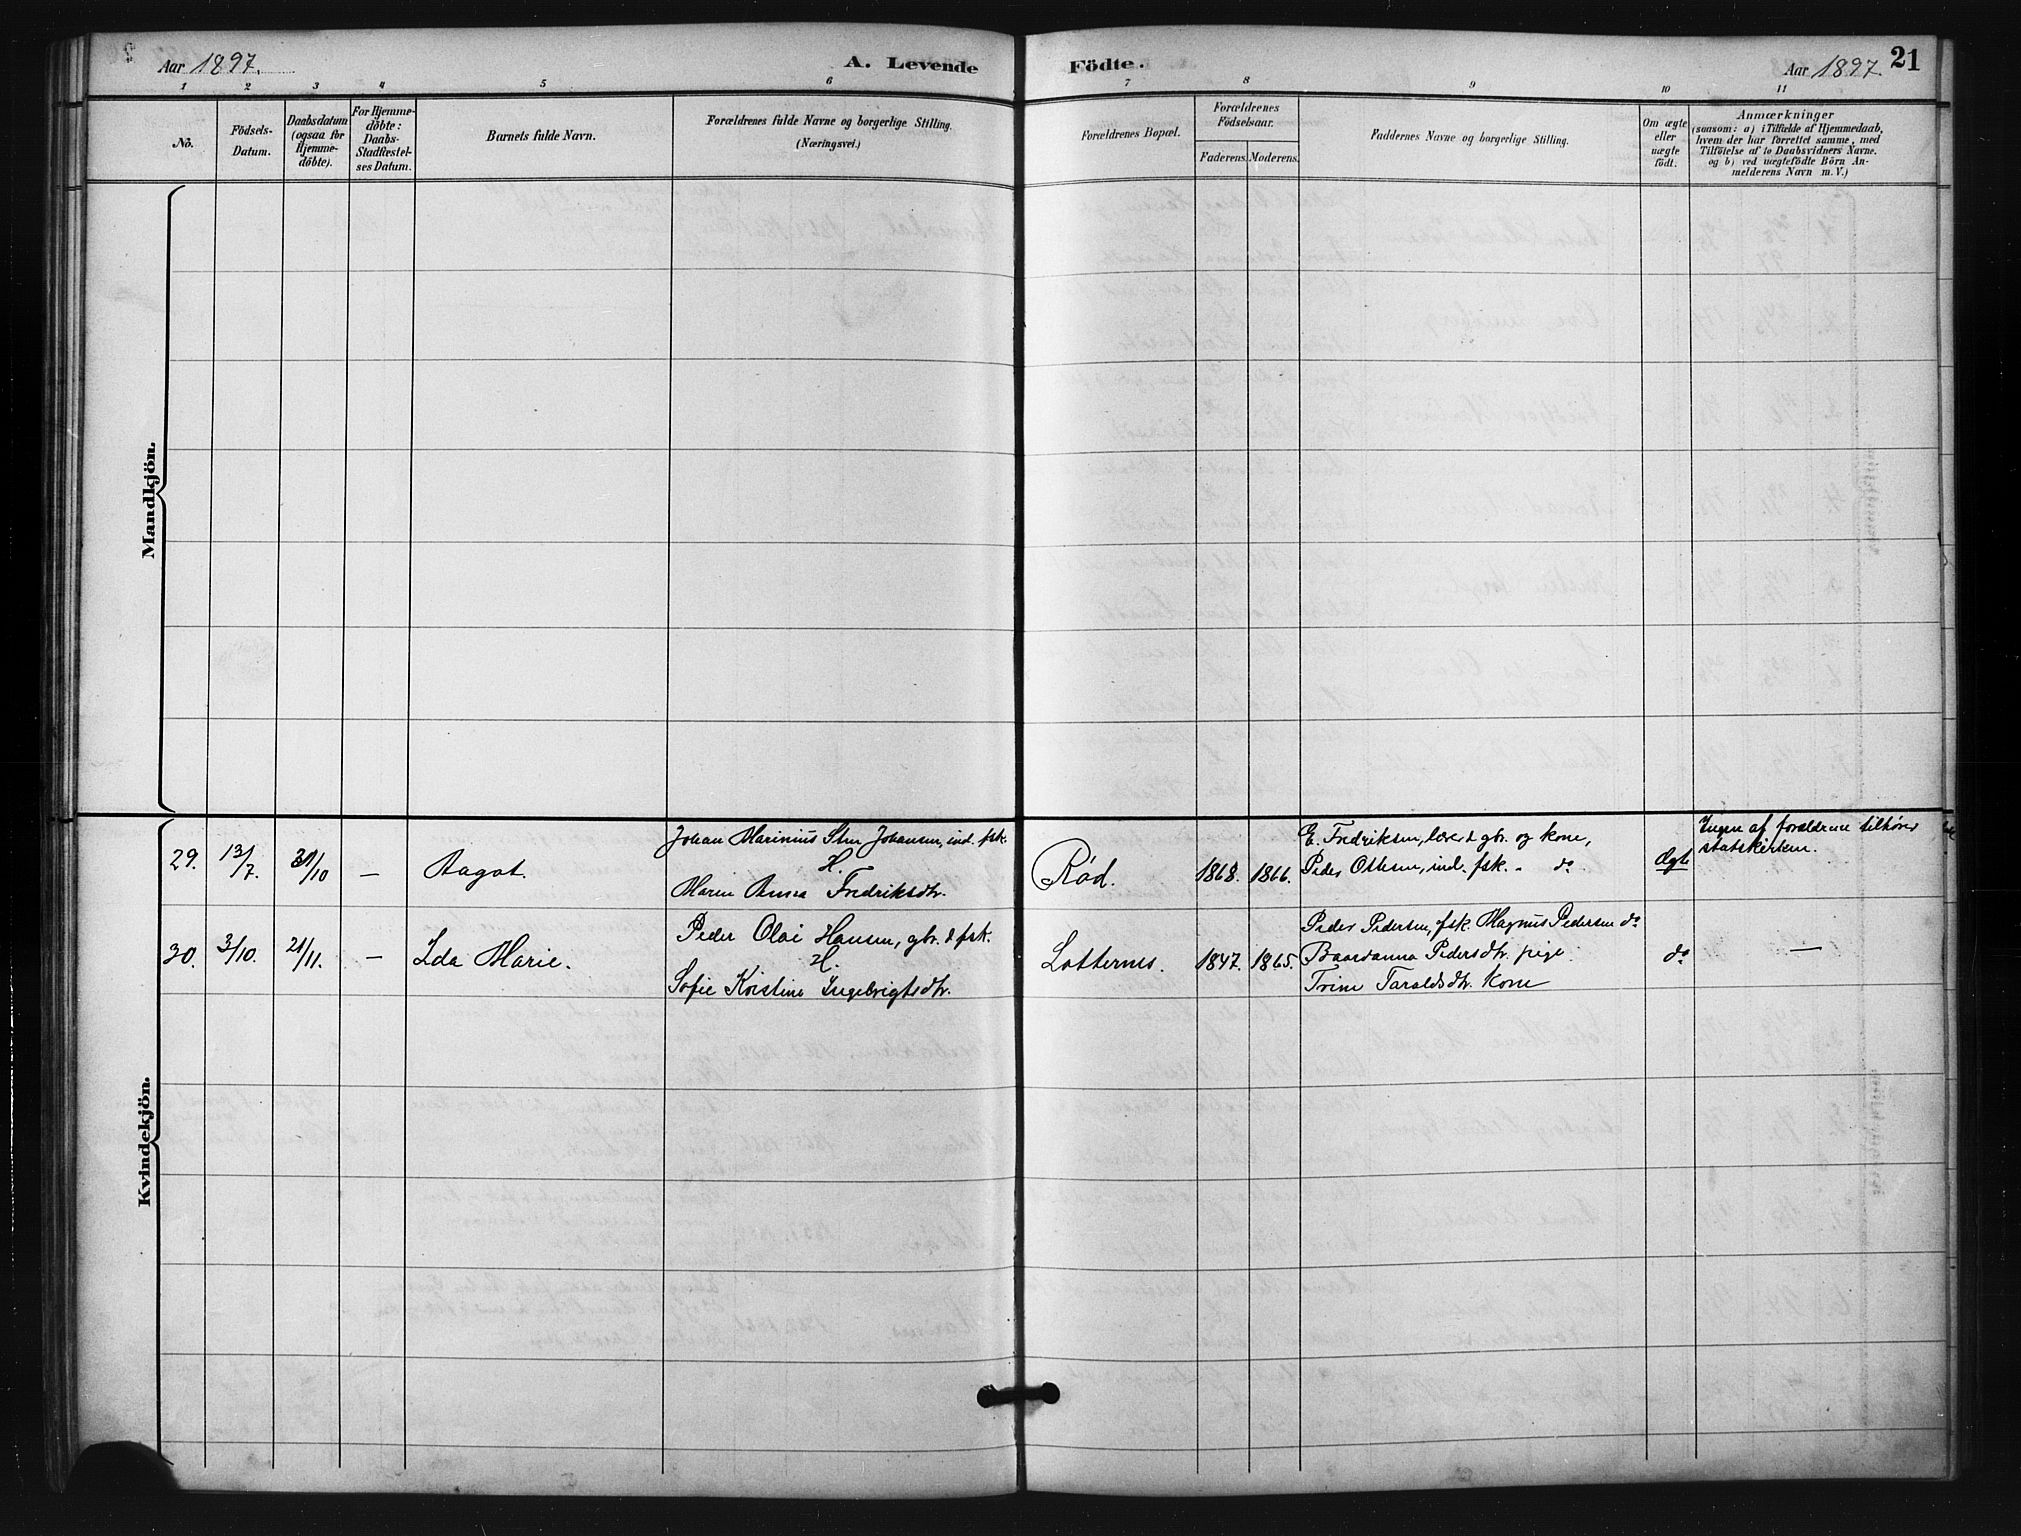 Aar 1897.
A. Levende Födte.
Aar 1897.
21
1 2 3 4 5 6 7 8 9 10 11
No.
Födsels-
Datum.
Daabsdatum
(ogsaa for
Hjemme-
döbte).
For Hjemme-
döbte:
Daabs-
Stadfæstel-
ses Datum.
Barnets fulde Navn.
Forældrenes fulde Navne og borgerlige Stilling.
(Næringsvei.)
Forældrenes Bopæl.
Forældrenes
Födselsaar.
Faderens. Moderens.
Faddernes Navne og borgerlige Stilling.
Om ægte
eller
uægte
födt.
Anmærkninger
(saasom: a) i Tilfælde af Hjemmedaab,
hvem der har forrettet samme, med
Tilföielse af to Daabsvidners Navne.
og b) ved uægtefödte Börn An-
melderens Navn m. V.)
Mandkjön.
Kvindekjön.
29. 13/7. 31/10 — Aagot.
Johan Marinius Johansen, ind. fsk.
H.
Maren Anna Fredriksdtr.
Rød. 1868. 1866.
E. Fredriksen, lærer & gbr. og kone,
Peder Ottesen, ind. fsk. - do
Ægte
Ingen af forældrene tilhører
statskirken.
30. 3/10. 21/11. — Ida Marie.
Peder Olai Hansen, gbr. & fsk.
H.
Sofie Kristine Ingebrigtsdtr.
Lotternes. 1847. 1865.
Peder Pedersen, fsk. Magnus Pedersen do
Baardanna Pedersdtr. pige
Trine Taraldsdtr. kone
do
—